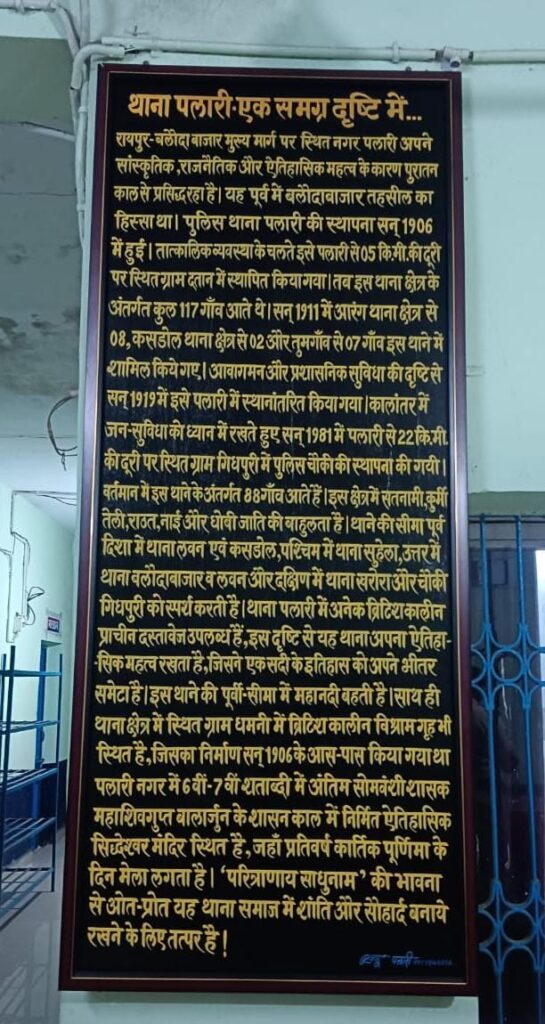 थाना पलारी-एक समग्र दृष्टि में...
रायपुर-बलौदाबाजार मुख्य मार्ग पर स्थित नगर पलारी अपने
सांस्कृतिक, राजनैतिक और ऐतिहासिक महत्व के कारण पुरातन
काल से प्रसिद्ध रहा है। यह पूर्व में बलौदाबाजार तहसील का
हिस्सा था। पुलिस थाना पलारी की स्थापना सन् 1906
में हुई। तात्कालिक व्यवस्था के चलते इसे पलारी से 05 कि.मी. की दूरी
पर स्थित ग्राम दतान में स्थापित किया गया। तब इस थाना क्षेत्र के
अंतर्गत कुल 117 गाँव आते थे। सन् 1911 में आरंग थाना क्षेत्र से
08, कसडोल थाना क्षेत्र से 02 और तुमगाँव से 07 गाँव इस थाने में
शामिल किये गए। आवागमन और प्रशासनिक सुविधा की दृष्टि से
सन् 1919 में इसे पलारी में स्थानांतरित किया गया। कालांतर में
जन-सुविधा को ध्यान में रखते हुए सन् 1981 में पलारी से 22 कि.मी.
की दूरी पर स्थित ग्राम गिधपुरी में पुलिस चौकी की स्थापना की गयी।
वर्तमान में इस थाने के अंतर्गत 88 गाँव आते हैं। इस क्षेत्र में सतनामी, कुर्मी
तेली, राउत, नाई और धोबी जाति की बाहुलता है। थाने की सीमा पूर्व
दिशा में थाना लवन एवं कसडोल, पश्चिम में थाना सुहेला, उत्तर में
थाना बलौदाबाजार व लवन और दक्षिण में थाना खरोरा और चौकी
गिधपुरी को स्पर्श करती है। थाना पलारी में अनेक ब्रिटिश कालीन
प्राचीन दस्तावेज उपलब्ध हैं, इस दृष्टि से यह थाना अपना ऐतिहा-
-सिक महत्व रखता है, जिसने एक सदी के इतिहास को अपने भीतर
समेटा है। इस थाने की पूर्वी-सीमा में महानदी बहती है। साथ ही
थाना क्षेत्र में स्थित ग्राम धमनी में ब्रिटिश कालीन विश्राम गृह भी
स्थित है, जिसका निर्माण सन् 1906 के आस-पास किया गया था
पलारी नगर में 6वीं-7वीं शताब्दी में अंतिम सोमवंशी शासक
महाशिवगुप्त बालार्जुन के शासन काल में निर्मित ऐतिहासिक
सिद्धेश्वर मंदिर स्थित है, जहाँ प्रतिवर्ष कार्तिक पूर्णिमा के
दिन मेला लगता है। 'परित्राणाय साधुनाम' की भावना
से ओत-प्रोत यह थाना समाज में शांति और सौहार्द बनाये
रखने के लिए तत्पर है!
पलारी